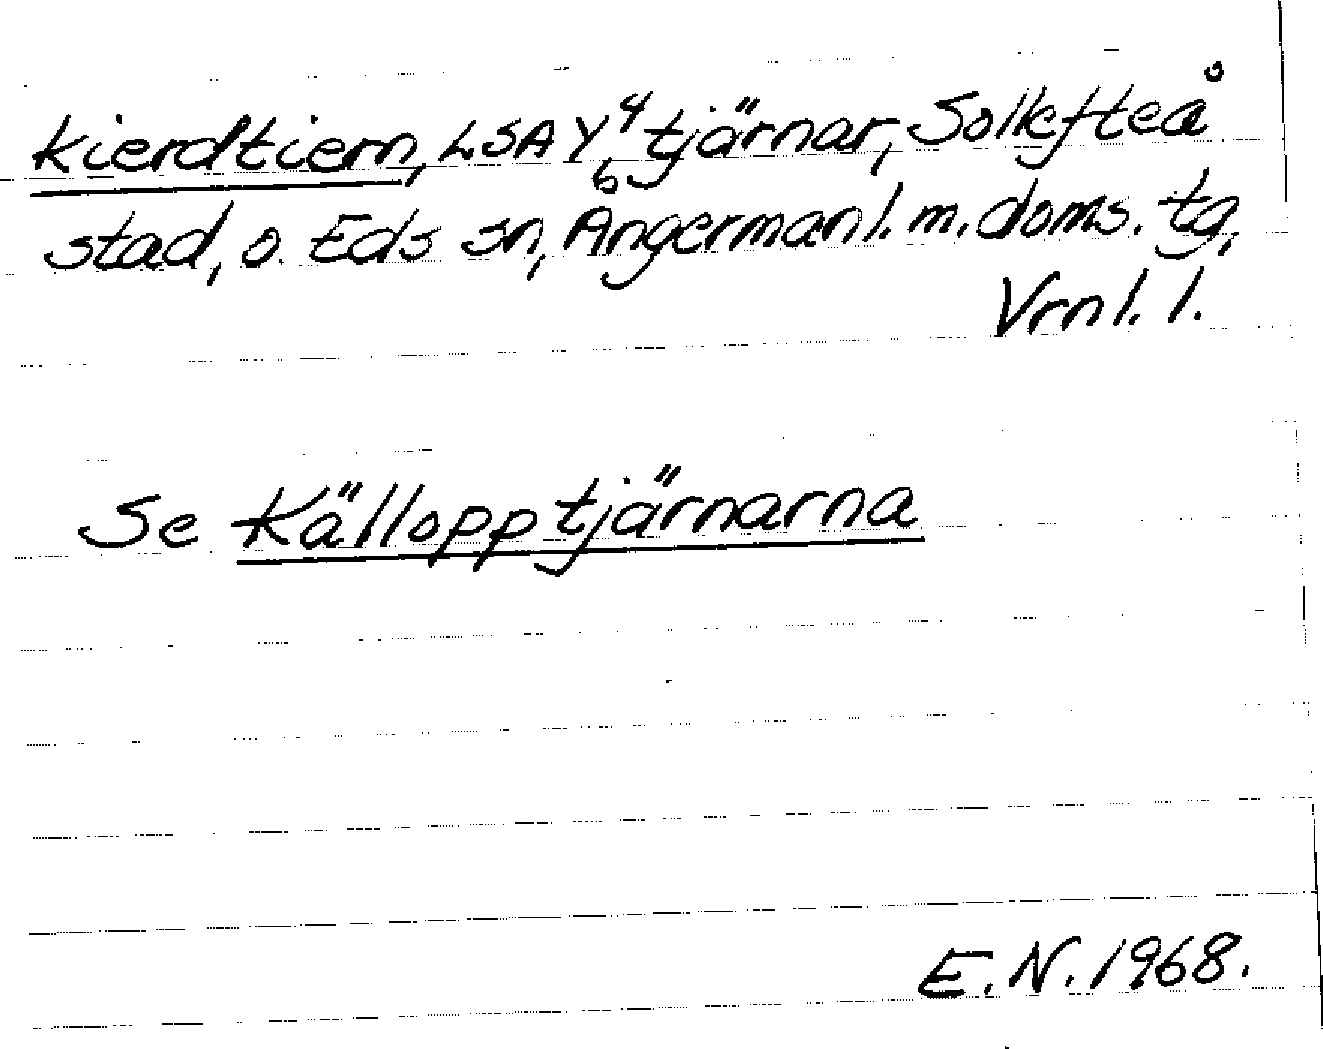 kierdtiern, LSA Y⁴₆ tjärnar, Sollefteå
stad, o. Eds sn, Ångermanl. m. doms. tg,
Vrnl. l.
Se Källopptjärnarna
E. N. 1968.